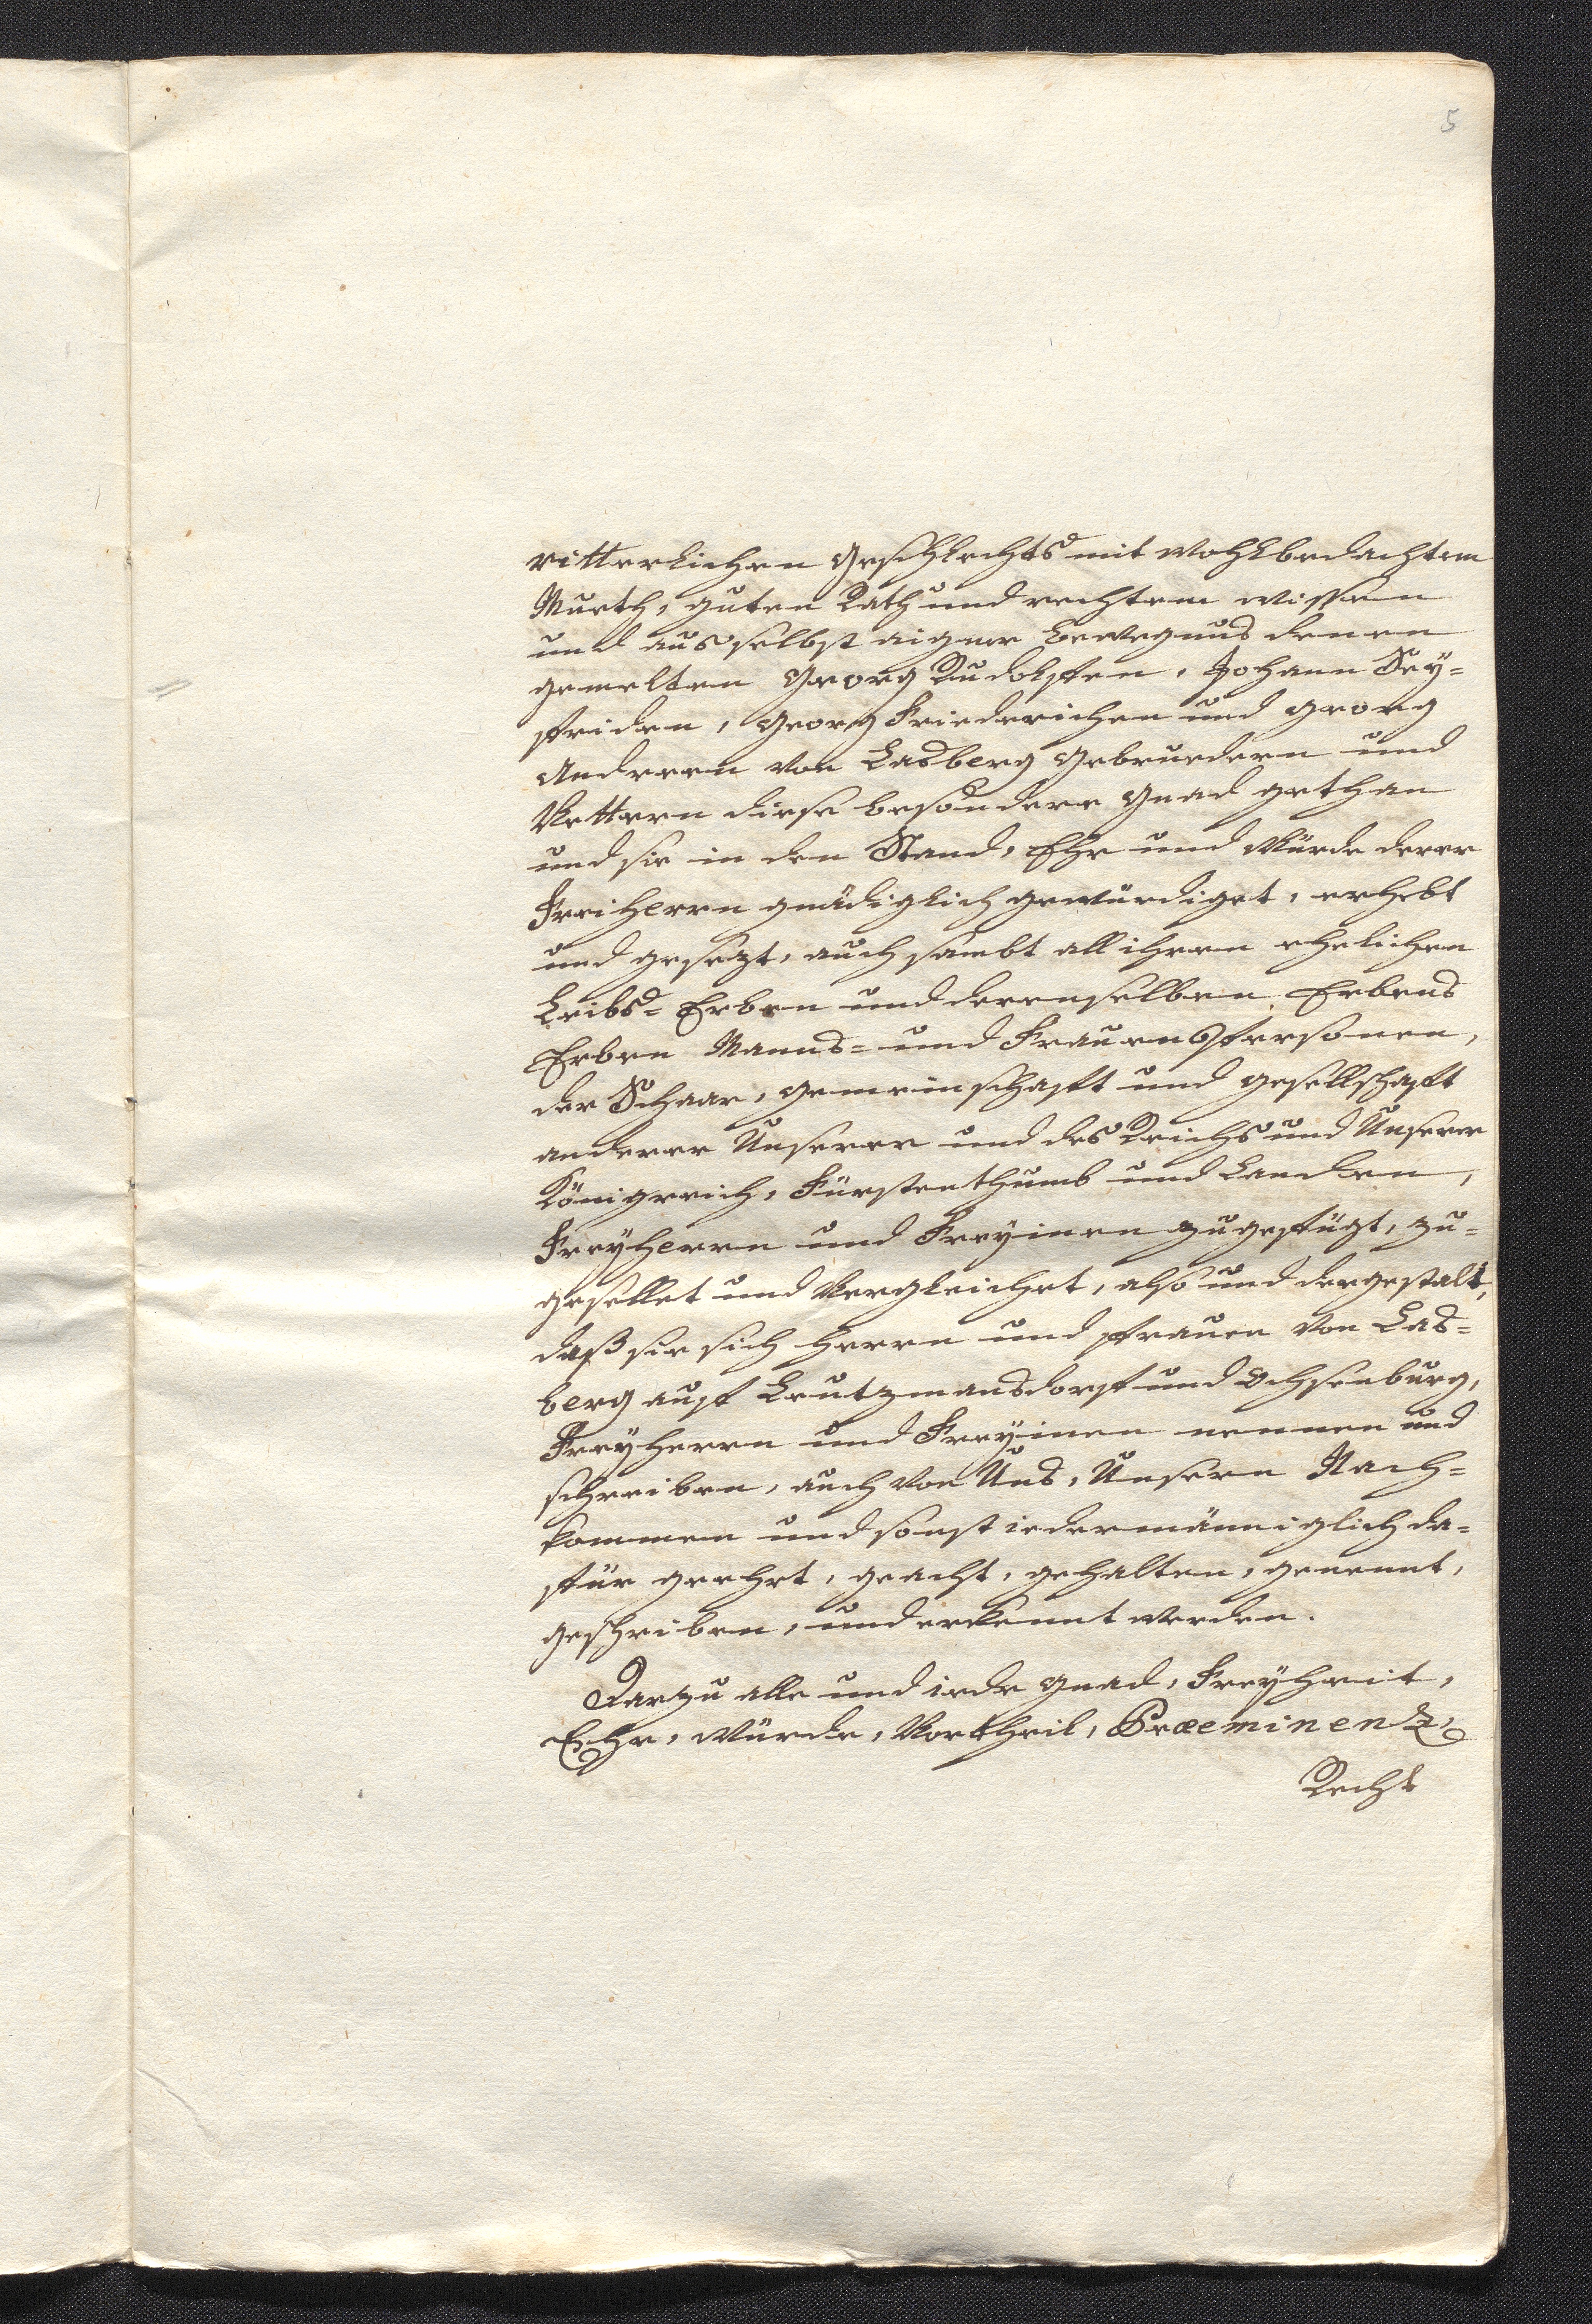 5
ritterlichen Geschlechts mit wohlbedachtem
Mueth, guten Rath und rechtem wissen
und aus selbst aigner bewegnus denen
gemelten Georg Rudolffen, Johann Sey=
friden, Georg Friederichen und Georg
Andreen von Lasberg Gebruedern und
Vettern diese besondere Gnad gethan
und sie in den Stand, Ehr und Würde derer
Freiherrn gnädiglich gewürdiget, erhebt
und gesezt, auch sambt all ihren ehelichen
Leibs=Erben und derenselben Erbens
Erben Manns= und Frauens Persohnen,
der Schaar, Gemeinschafft und Gesellschafft
anderer Unserer und des Reichs und Unserer
Königreich, Fürstenthumb und Landen,
Freyherrn und Freyinen zugefügt, zu=
gesellet und Vergleichet, also und dergestalt,
daß sie sich Herrn und Frauen von Las=
berg auff Leutzmansdorff und Ochsenburg,
Freyherrn und Freyinen nennen und
schreiben, auch von Uns, Unsern Nach=
kommen und sonst iedermänniglich da=
für geehrt, geacht, gehalten, genennt,
geschriben, und erkennt werden.
Darzu alle und iede Gnad, Freyheit,
Ehr, Würde, Vortheil, Præeminenz,
Recht